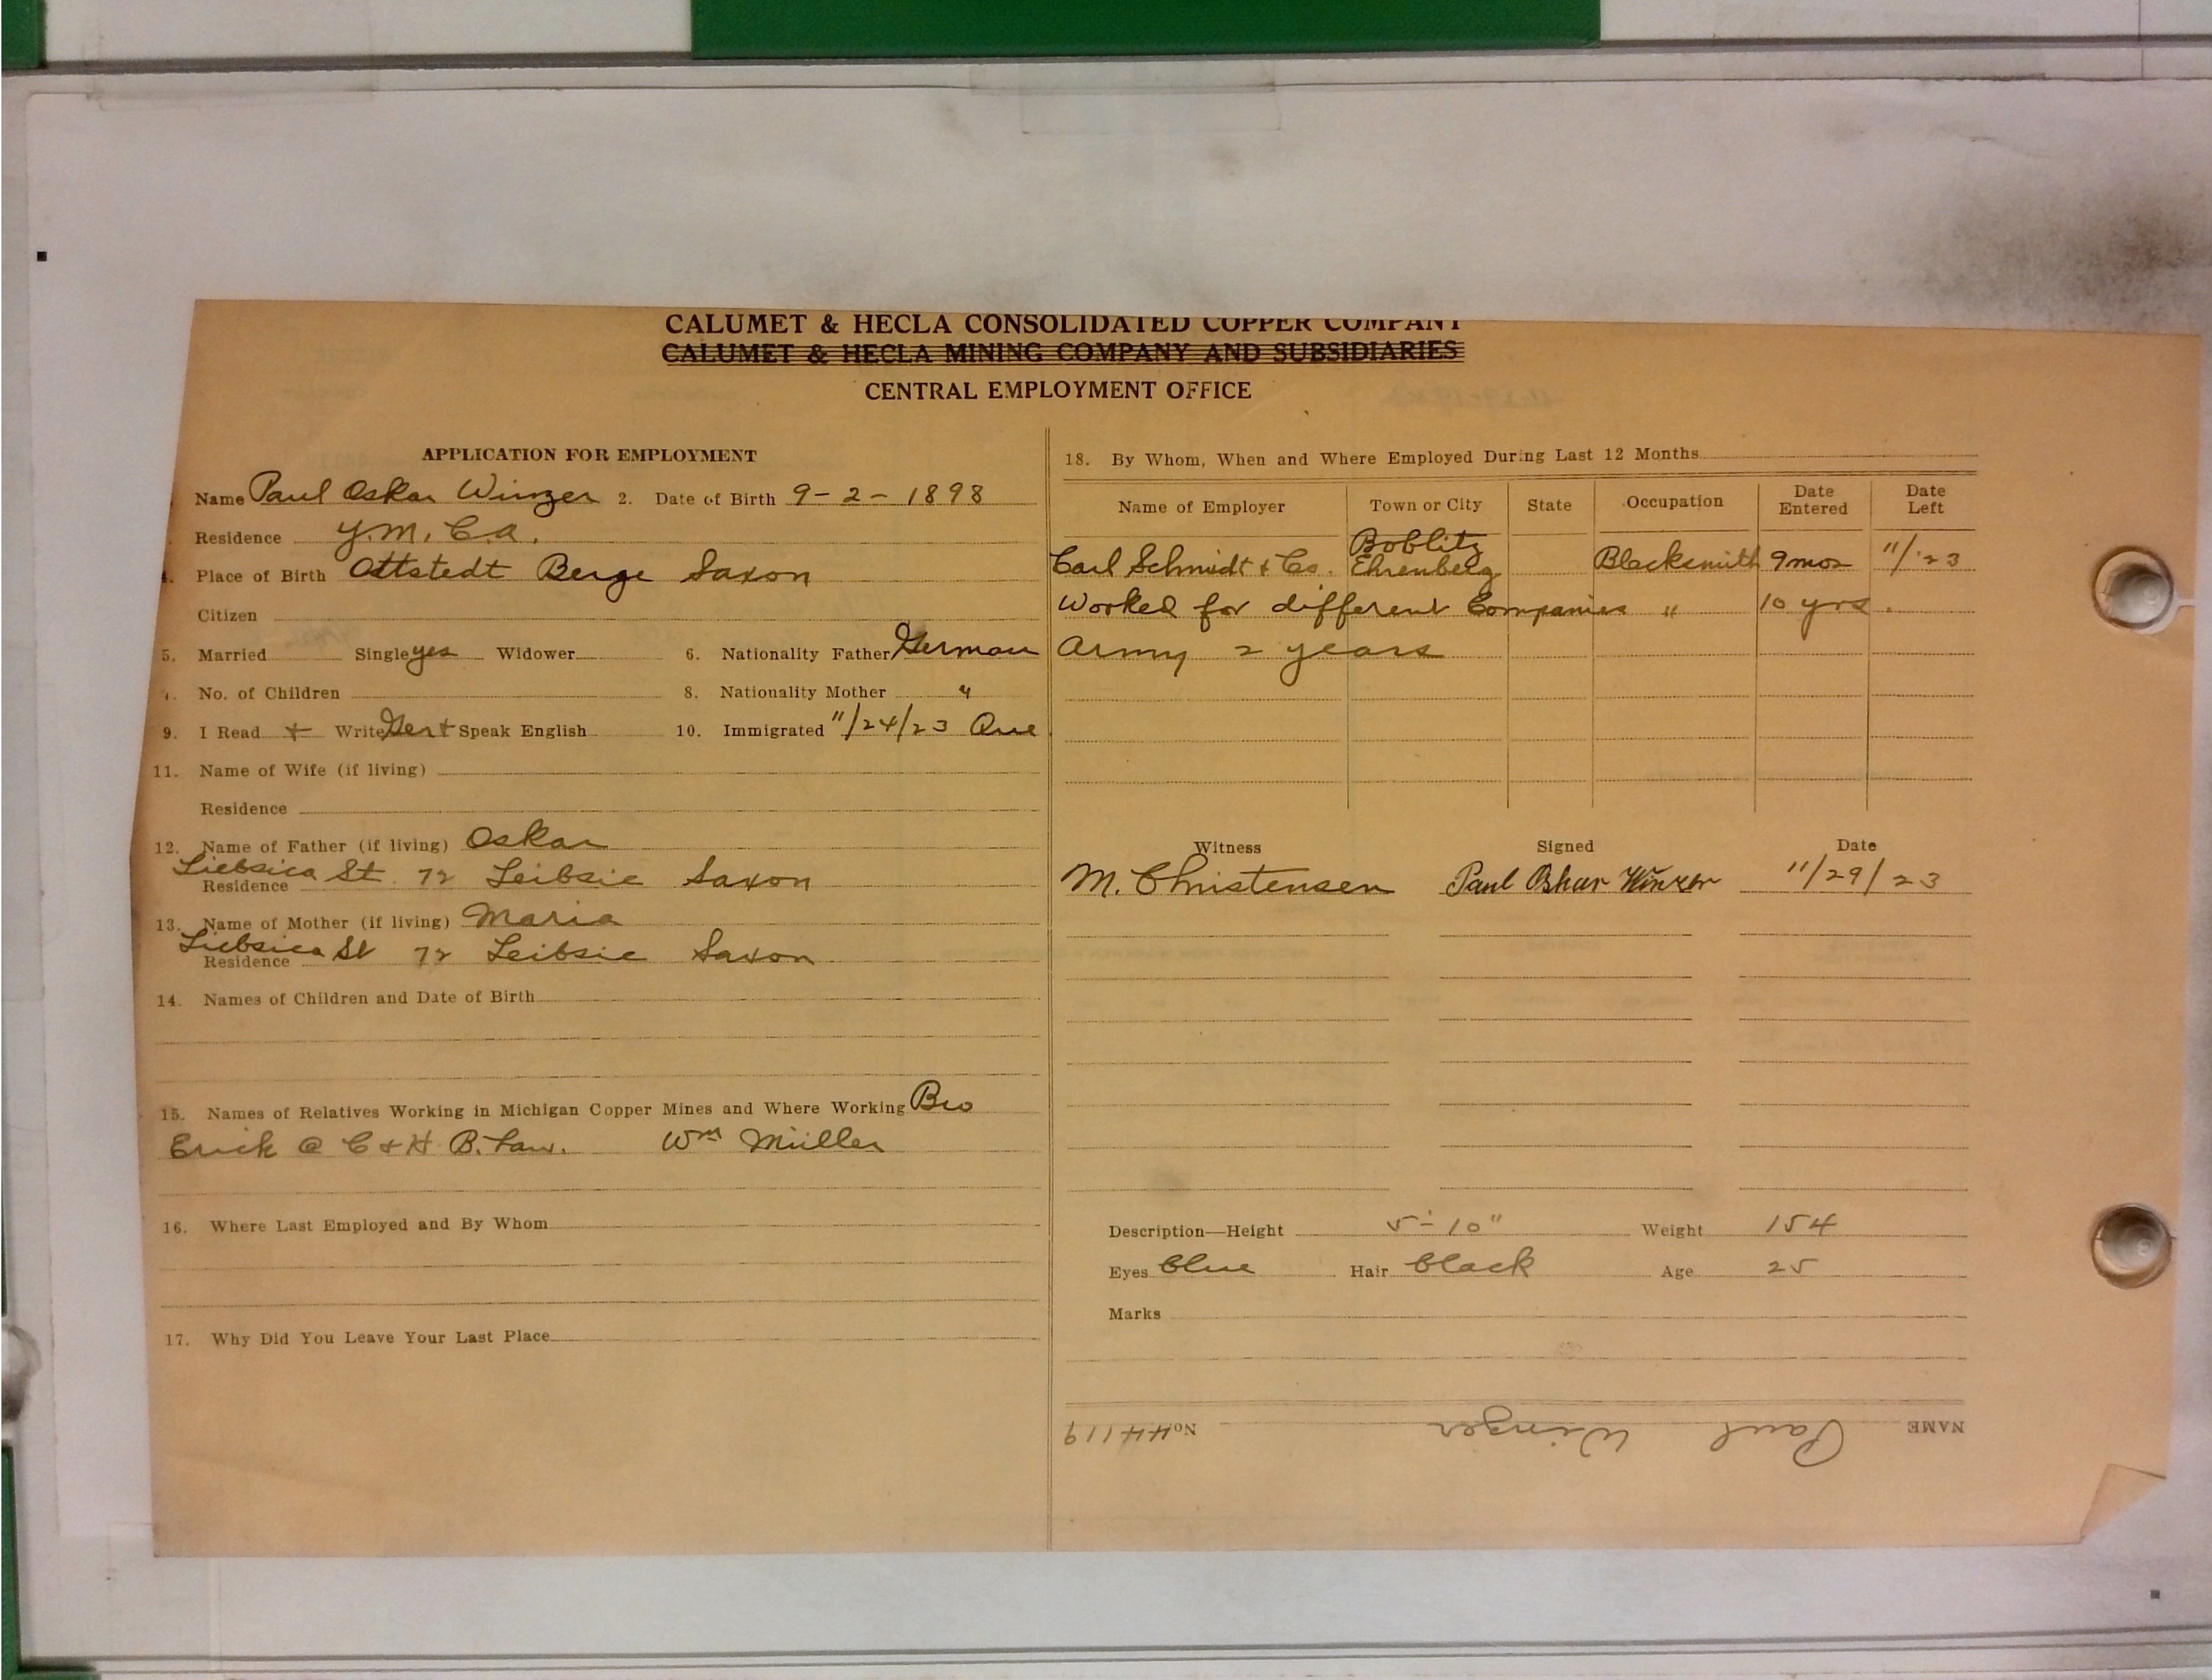 CALUMET & HECLA CONSOLIDATED COPPER COMPANY
CALUMET & HECLA MINING COMPANY AND SUBSIDIARIES
CENTRAL EMPLOYMENT OFFICE
APPLICATION FOR EMPLOYMENT
Name Paul Oskar Winzer 2. Date of Birth 9-2-1898
Residence Y.M.C.A.
4. Place of Birth Attstedt Berge Saxon
Citizen
5. Married Single yes Widower 6. Nationality Father German
No. of Children 8. Nationality Mother "
9. I Read + Write Ger + Speak English 10. Immigrated 11/24/23 Que
11. Name of Wife (if living)
Residence
12. Name of Father (if living) Oskar
Residence Liebsica St. 72 Leibsic Saxon
13. Name of Mother (if living) Maria
Residence Liebsica St 72 Leibsic Saxon
14. Names of Children and Date of Birth
15. Names of Relatives Working in Michigan Copper Mines and Where Working Bro
Erick @ C & H B. Law. Wm Müller
16. Where Last Employed and By Whom
17. Why Did You Leave Your Last Place
18. By Whom, When and Where Employed During Last 12 Months
Name of Employer Town or City State Occupation Date Entered Date Left
Carl Schmidt & Co. Boblitz Ehrenberg Blacksmith 9 mos 11/'23
Worked for different Companies " 10 yrs.
Army 2 years
Witness Signed Date
M. Christensen Paul Oskar Winzer 11/29/23
Description—Height 5'-10" Weight 154
Eyes blue Hair black Age 25
Marks
NAME Paul Winzer No. 44119